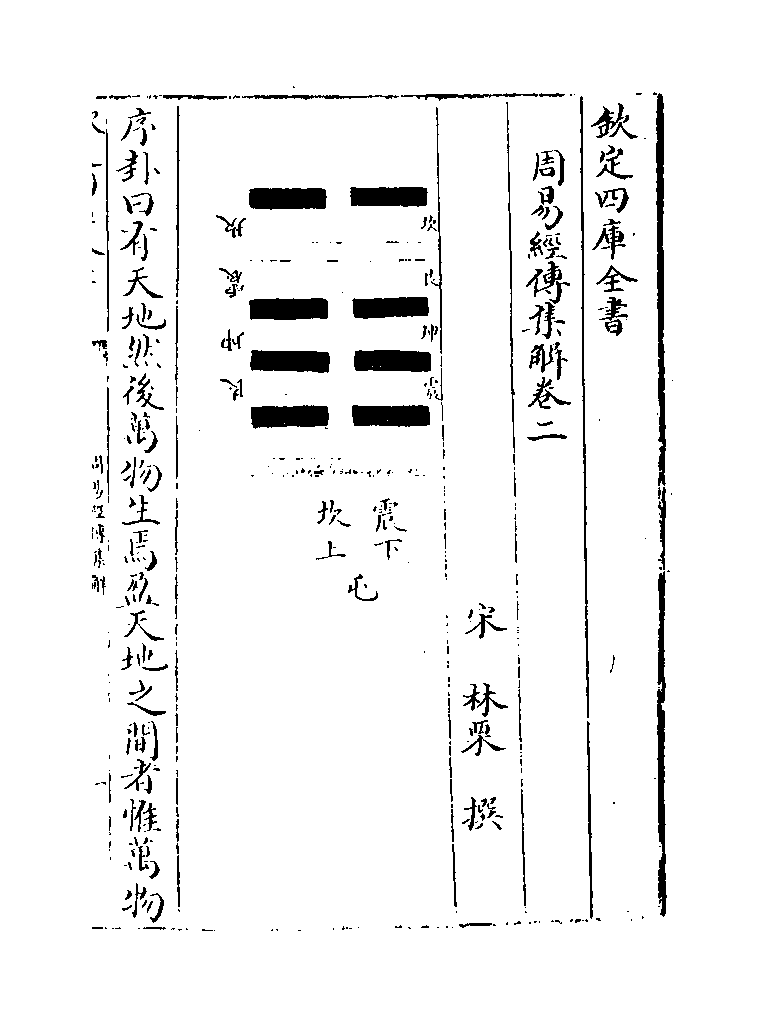 欽定四庫全書
周易經傳集解卷二
宋 林栗 撰
坎
艮
坤
震
震下
坎上
屯
坎
震
坤
艮
序卦曰有天地然後萬物生焉盈天地之間者惟萬物
周易經傳集解
一